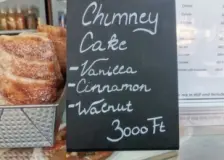 Chimney
Cake
- Vanilla
- Cinnamon
- Walnut
3000 Ft